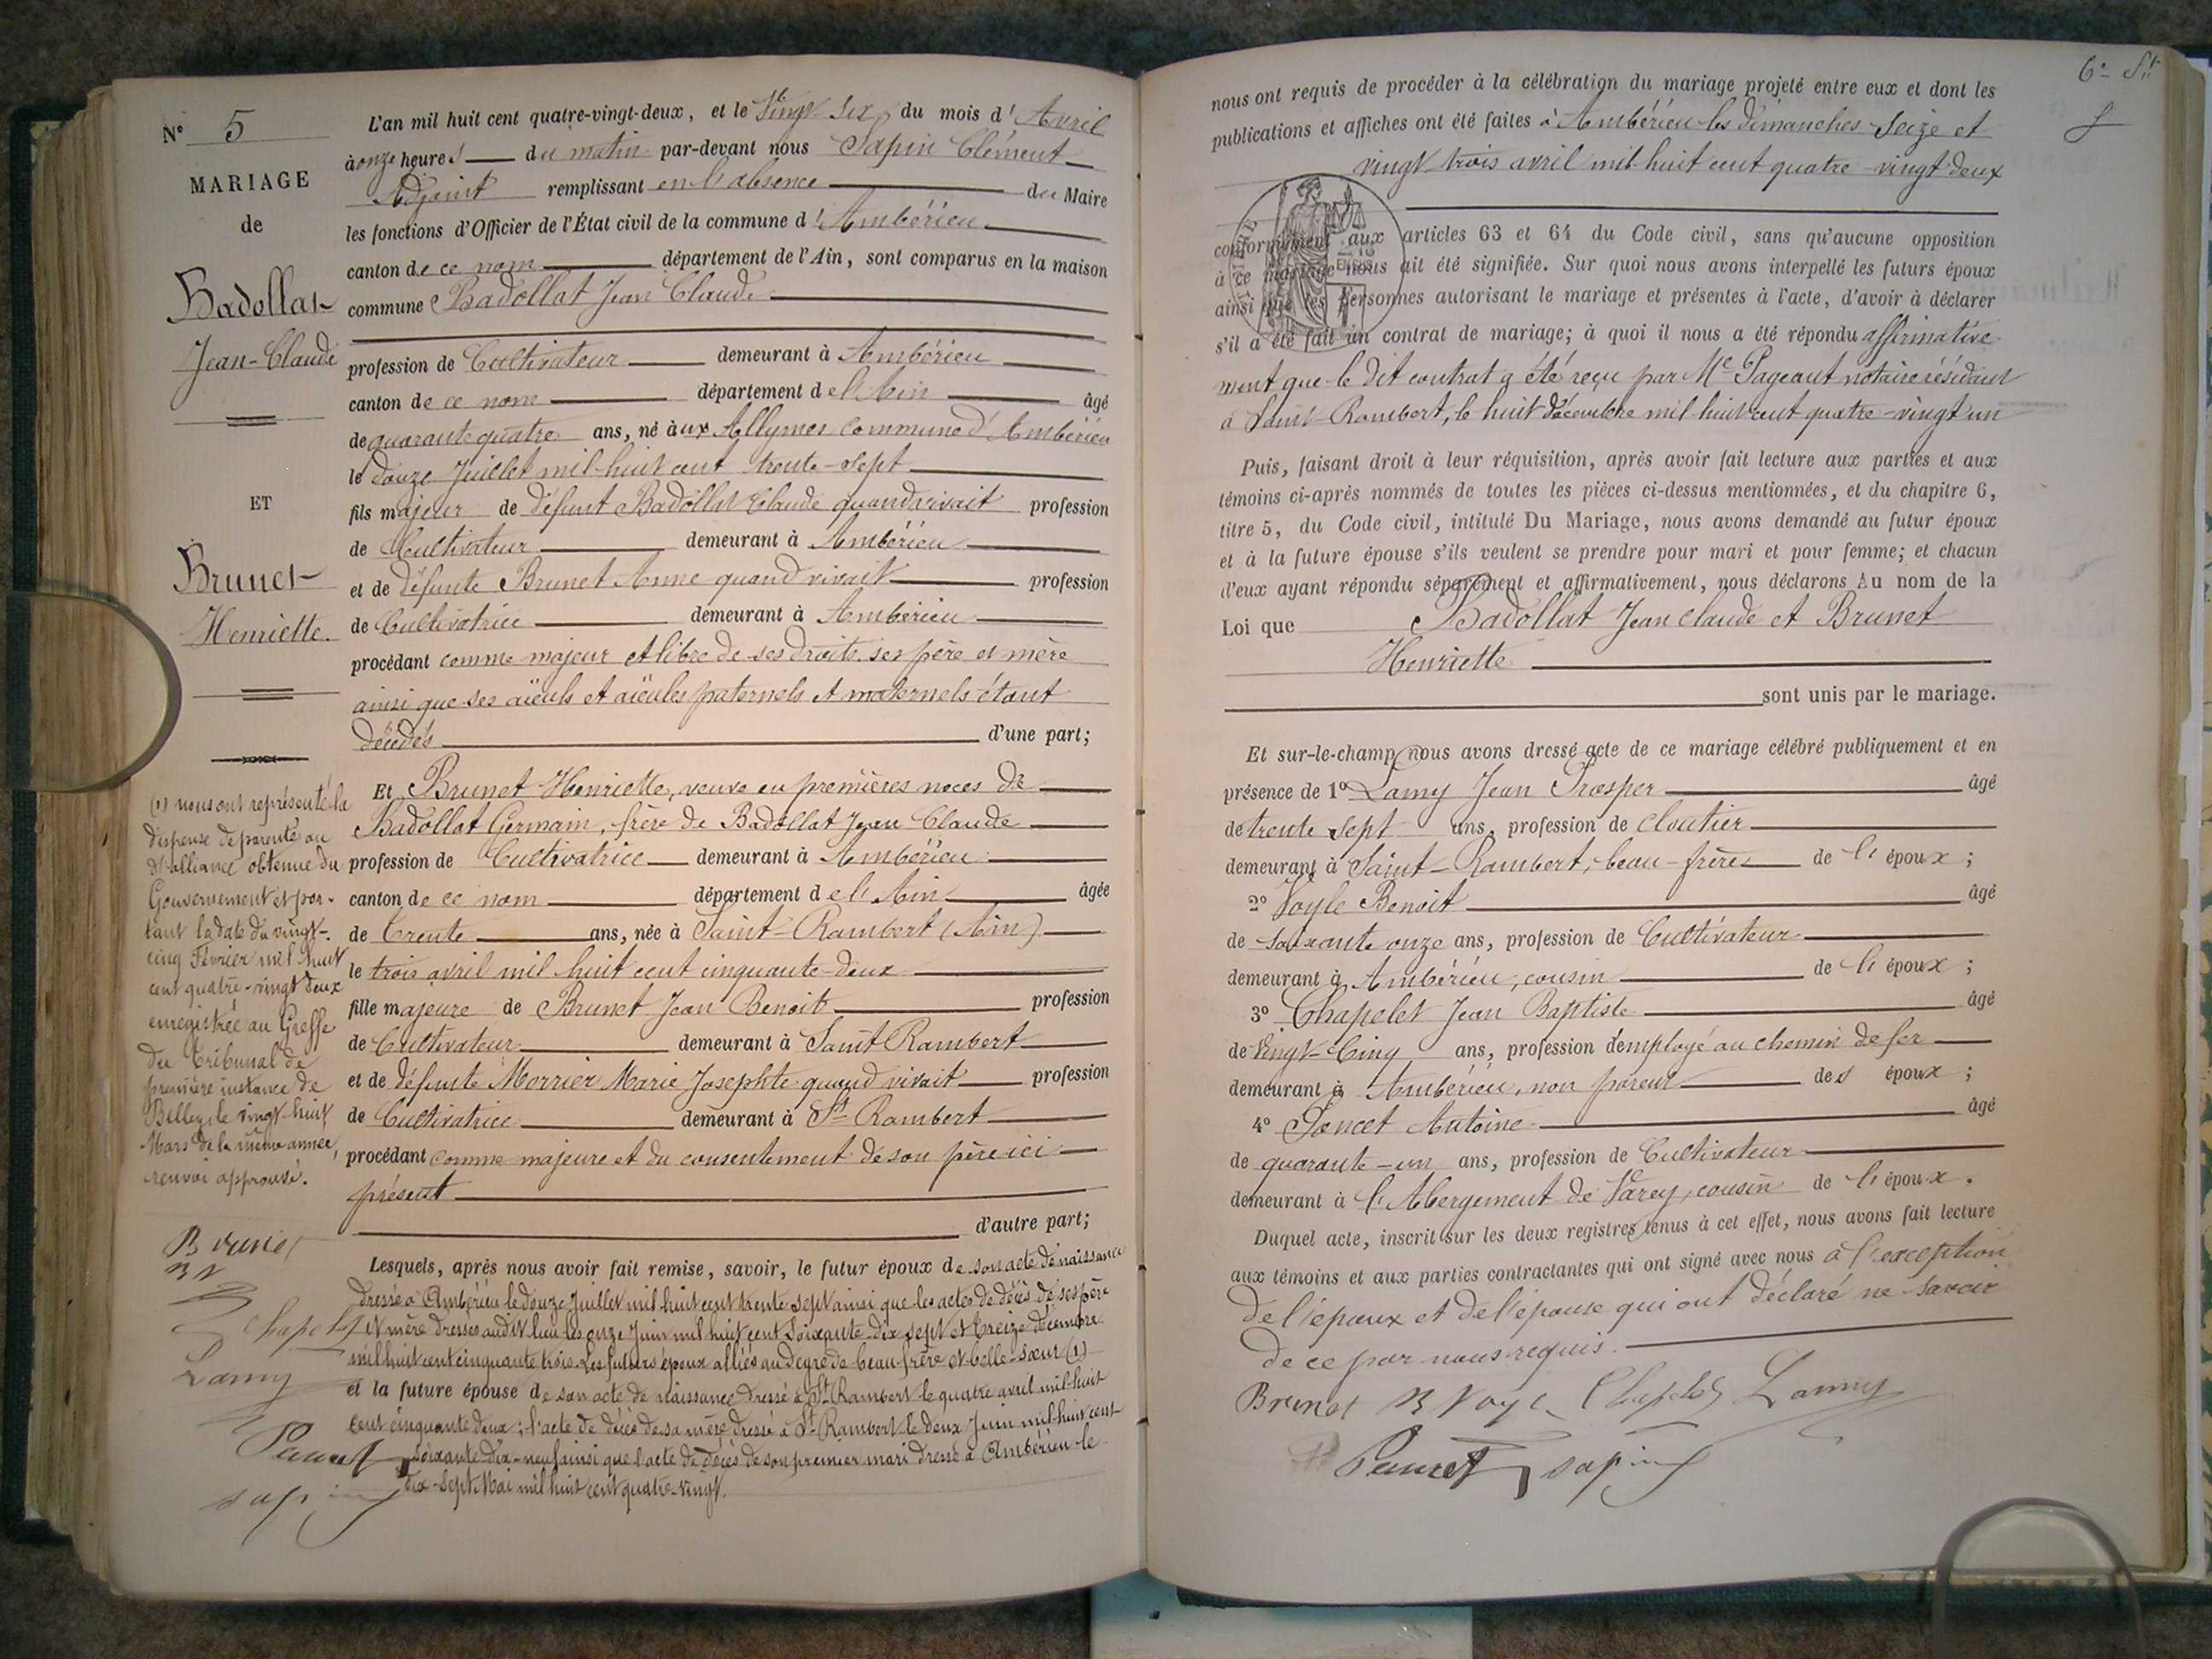 N° 5
MARIAGE
de
Badollat
Jean-Claude
ET
Brunet
Henriette.
L'an mil huit cent quatre-vingt-deux, et le Vingt-Six du mois d'Avril
à onze heures du matin par-devant nous Sapin Clément
Adjoint remplissant en l'absence du Maire
les fonctions d'Officier de l'État civil de la commune d'Ambérieu
canton de ce nom département de l'Ain, sont comparus en la maison
commune Badollat Jean Claude
profession de Cultivateur demeurant à Ambérieu
canton de ce nom département de l'Ain âgé
de quarante quatre ans, né aux Allymes commune d'Ambérieu
le douze Juillet mil-huit cent trente-sept
fils majeur de défunt Badollat Claude quand vivait profession
de Cultivateur demeurant à Ambérieu
et de défunte Brunet Anne quand vivait profession
de Cultivatrice demeurant à Ambérieu
procédant comme majeur et libre de ses droits, ses père et mère
ainsi que ses aïeuls et aïeules paternels et maternels étant
décédés d'une part;
Et Brunet Henriette, veuve en premières noces de
Badollat Germain, frère de Badollat Jean Claude
profession de Cultivatrice demeurant à Ambérieu
canton de ce nom département de l'Ain âgée
de Trente ans, née à Saint-Rambert (Ain)
le trois avril mil huit cent cinquante-deux
fille majeure de Brunet Jean Benoit profession
de Cultivateur demeurant à Saint Rambert
et de défunte Morrier Marie Josephte quand vivait profession
de Cultivatrice demeurant à St Rambert
procédant comme majeure et du consentement de son père ici
présent
d'autre part;
Lesquels, après nous avoir fait remise, savoir, le futur époux de son acte de naissance
dressé à Ambérieu le douze Juillet mil huit cent trente-sept ainsi que les actes de décès de ses père
et mère dressés audit lieu les onze Juin mil huit cent soixante-dix sept et treize décembre
mil huit cent cinquante trois. Les futurs époux alliés au degré de beau-frère et belle-sœur (1)
et la future épouse de son acte de naissance dressé à St Rambert le quatre avril mil-huit
cent cinquante deux; l'acte de décès de sa mère dressé à St Rambert le deux Juin mil-huit cent
soixante dix-neuf ainsi que l'acte de décès de son premier mari dressé à Ambérieu le
dix-sept Mai mil huit cent quatre-vingt.
(1) nous ont représenté la
dispense de parenté ou
d'alliance obtenue du
Gouvernement et por-
tant la date du vingt-
cinq Février mil huit
cent quatre-vingt deux
enregistrée au Greffe
du Tribunal de
première instance de
Belley, le vingt-huit
Mars de la même année,
renvoi approuvé.
Brunet
B V
Chapelet
Lamy
Poncet
sapin
6e
nous ont requis de procéder à la célébration du mariage projeté entre eux et dont les
publications et affiches ont été faites à Ambérieu les dimanches Seize et
vingt-trois avril mil huit cent quatre-vingt-deux
conformément aux articles 63 et 64 du Code civil, sans qu'aucune opposition
à ce mariage nous ait été signifiée. Sur quoi nous avons interpellé les futurs époux
ainsi que les personnes autorisant le mariage et présentes à l'acte, d'avoir à déclarer
s'il a été fait un contrat de mariage; à quoi il nous a été répondu affirmative-
ment que le dit contrat a été reçu par Me Pageaut notaire résidant
à Saint-Rambert, le huit décembre mil huit cent quatre-vingt un
Puis, faisant droit à leur réquisition, après avoir fait lecture aux parties et aux
témoins ci-après nommés de toutes les pièces ci-dessus mentionnées, et du chapitre 6,
titre 5, du Code civil, intitulé Du Mariage, nous avons demandé au futur époux
et à la future épouse s'ils veulent se prendre pour mari et pour femme; et chacun
d'eux ayant répondu séparément et affirmativement, nous déclarons Au nom de la
Loi que Badollat Jean Claude et Brunet
Henriette
sont unis par le mariage.
Et sur-le-champ nous avons dressé acte de ce mariage célébré publiquement et en
présence de 1° Lamy Jean Prosper âgé
de trente sept ans, profession de cloutier
demeurant à Saint-Rambert, beau-frère de l'époux;
2° Voyle Benoit âgé
de soixante onze ans, profession de Cultivateur
demeurant à Ambérieu, cousin de l'époux;
3° Chapelet Jean Baptiste âgé
de Vingt-Cinq ans, profession d'employé au chemin de fer
demeurant à Ambérieu, non parent des époux;
4° Poncet Antoine âgé
de quarante-un ans, profession de Cultivateur
demeurant à l'Abergement de Varey, cousin de l'époux.
Duquel acte, inscrit sur les deux registres tenus à cet effet, nous avons fait lecture
aux témoins et aux parties contractantes qui ont signé avec nous à l'exception
de l'époux et de l'épouse qui ont déclaré ne savoir
de ce par nous requis.
Brunet B Voyle Chapelet Lamy
Poncet sapin